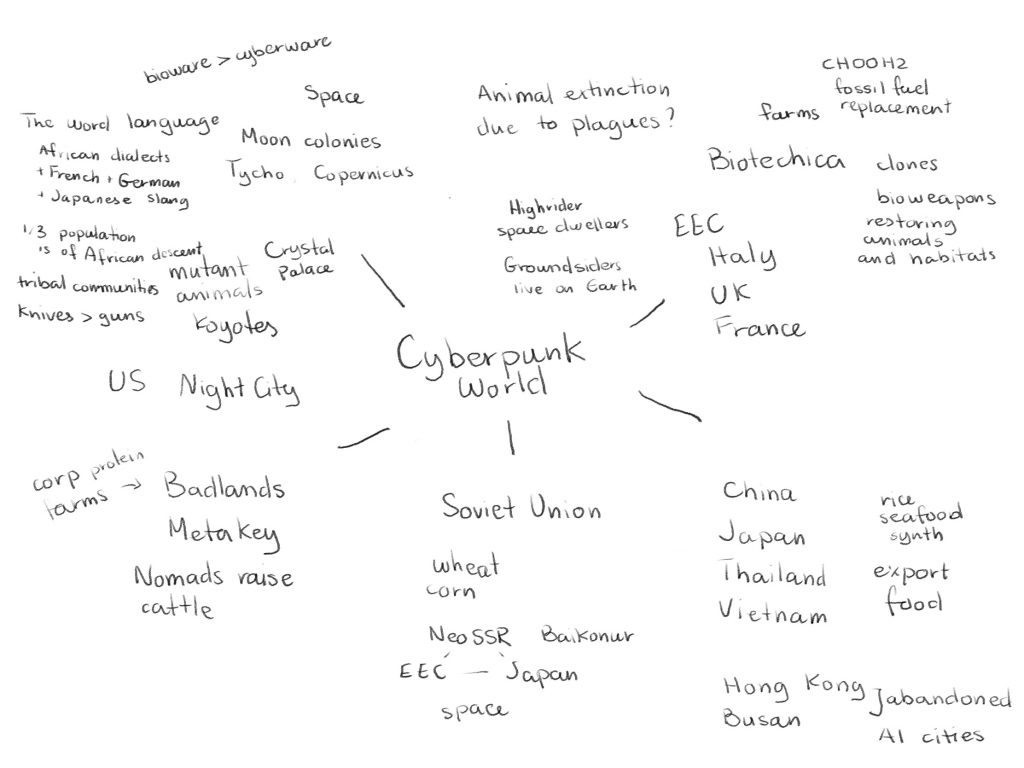 bioware > cyberware
Space
The word language
African dialects
+ French + German
+ Japanese slang
1/3 population
is of African descent
tribal communities
Knives > guns
Moon colonies
Tycho Copernicus
Crystal
palace
mutant
animals
Koyotes
US Night City
Animal extinction
due to plagues?
Highrider
space dwellers
Groundsiders
live on Earth
CHOOH2
fossil fuel
replacement
farms
Biotechica
clones
bioweapons
restoring
animals
and habitats
EEC
Italy
UK
France
Cyberpunk
World
corp protein
farms →
Badlands
Metakey
Nomads raise
cattle
Soviet Union
wheat
corn
NeoSSR Baikonur
EEC — Japan
space
China
Japan
Thailand
Vietnam
rice
seafood
synth
export
food
Hong Kong
Busan
abandoned
AI cities